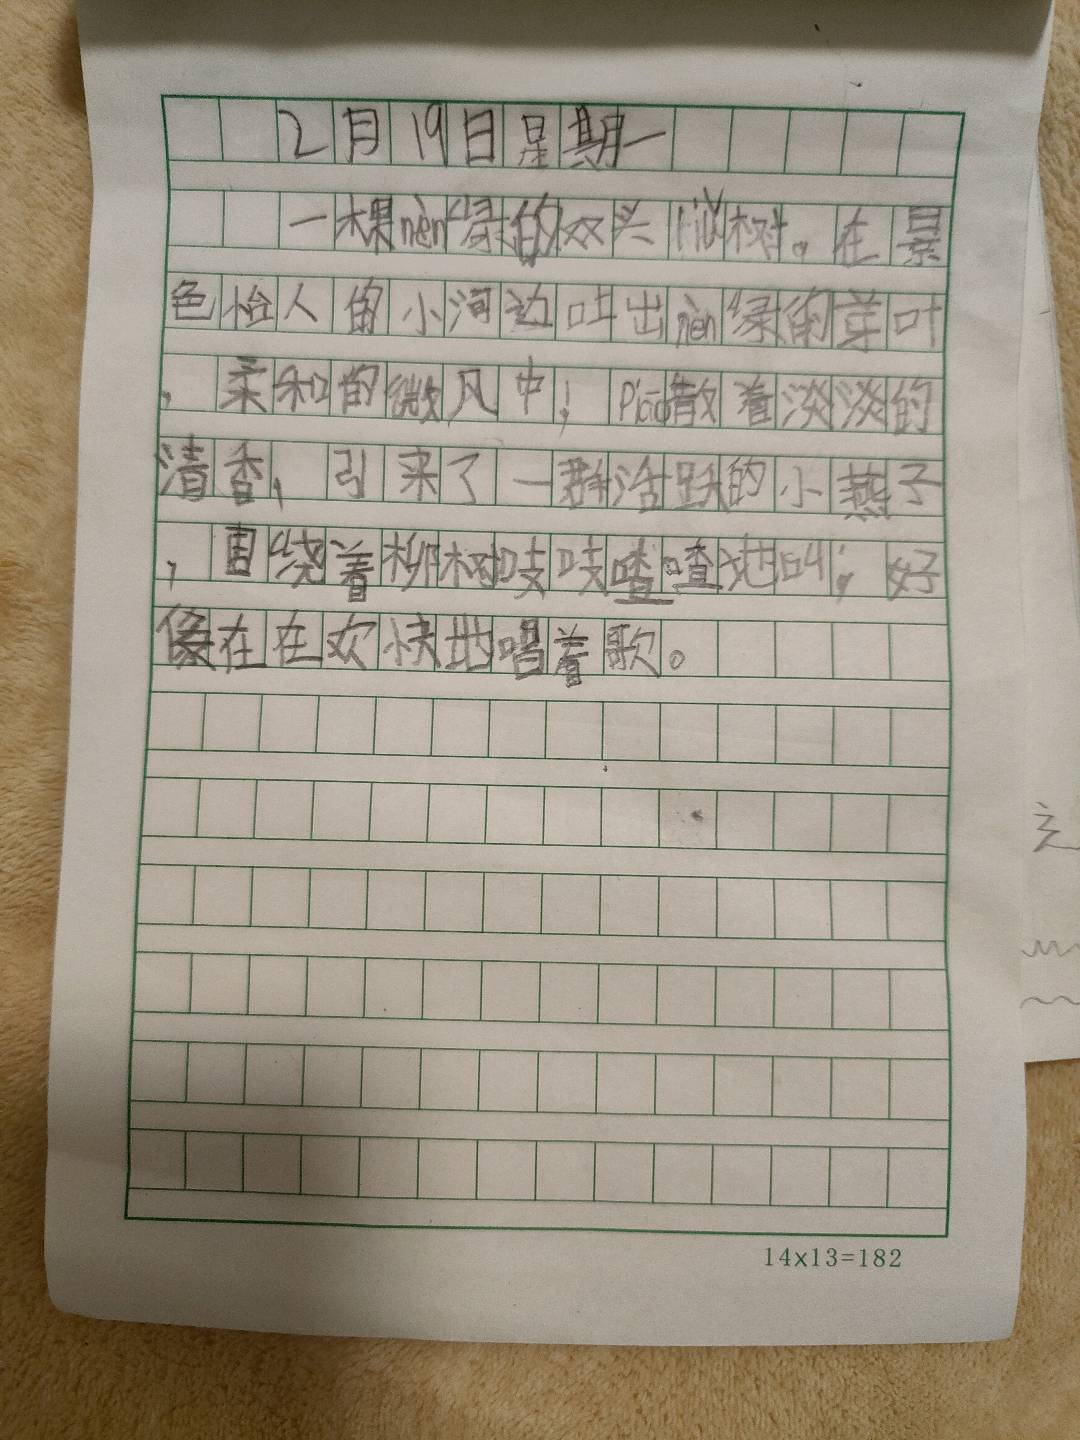 2月19日星期一
一棵nèn绿的双头 树。在景
色怡人的小河边吐出nèn绿的芽叶
，亲和的微风中，piāo散着淡淡的
清香，引来了一群活跃的小燕子
，围绕着柳树吱吱喳喳地叫；好
像在在欢快地唱着歌。
14x13=182